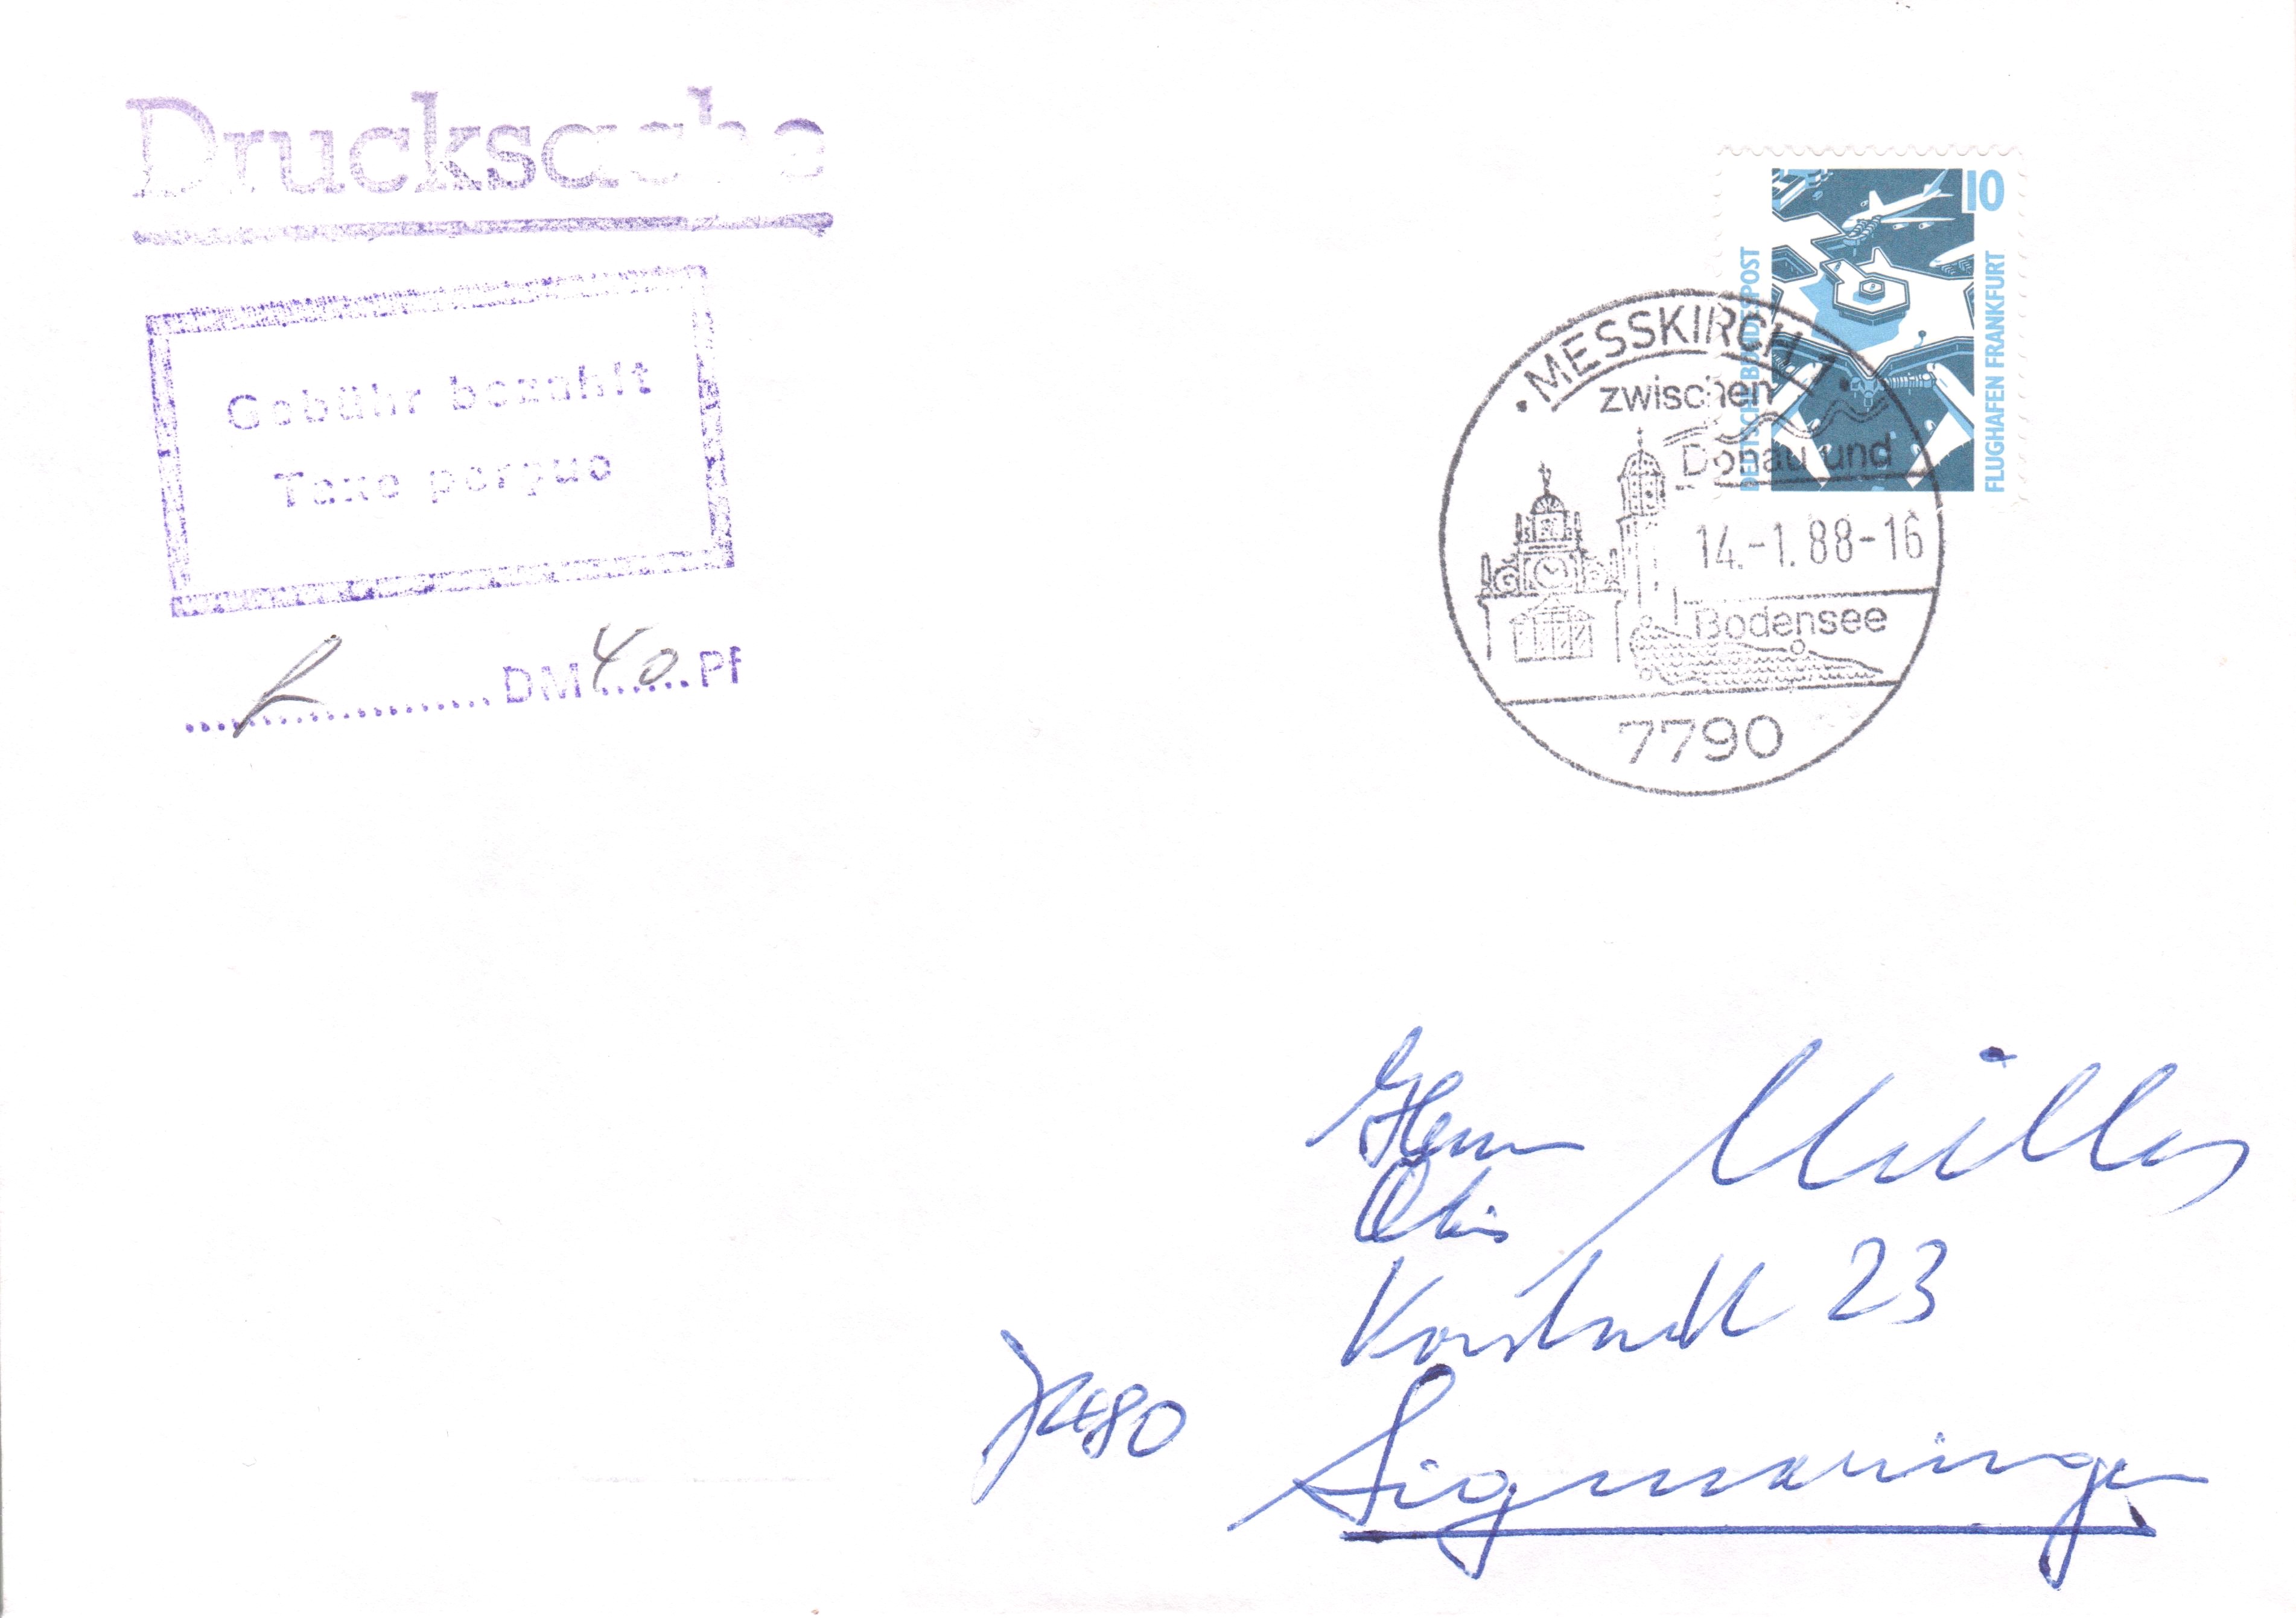 Drucksache
Gebühr bezahlt
Taxe perçue
DM 40 Pf
10
DEUTSCHE BUNDESPOST
FLUGHAFEN FRANKFURT
· MESSKIRCH 1 ·
zwischen
Donau und
14.-1.88-16
Bodensee
7790
Herrn
Müller
Vorstadt 23
7480
Sigmaringen